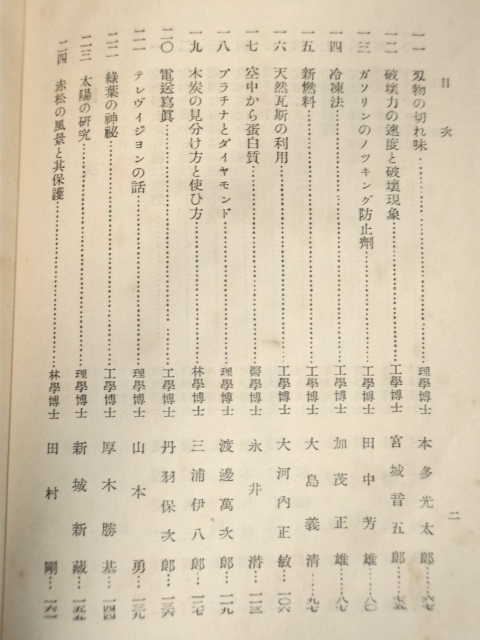 目次
二
一一 刄物の切れ味……理學博士 本多光太郎…六七
一二 破壊力の速度と破壊現象……工學博士 宮城音五郎…七五
一三 ガソリンのノツキング防止劑……工學博士 田中芳雄…八〇
一四 冷凍法……工學博士 加茂正雄…八七
一五 新燃料……工學博士 大島義淸…九七
一六 天然瓦斯の利用……工學博士 大河內正敏…一〇六
一七 空中から蛋白質……醫學博士 永井潛…一一三
一八 プラチナとダイヤモンド……理學博士 渡邊萬次郎…一一九
一九 木炭の見分け方と使ひ方……林學博士 三浦伊八郎…一二七
二〇 電送寫眞……工學博士 丹羽保次郎…一三六
二一 テレヴイジヨンの話……理學博士 山本勇…一三九
二二 綠葉の神祕……工學博士 厚木勝基…一四四
二三 太陽の硏究……理學博士 新城新藏…一五五
二四 赤松の風景と其保護……林學博士 田村剛…一六一